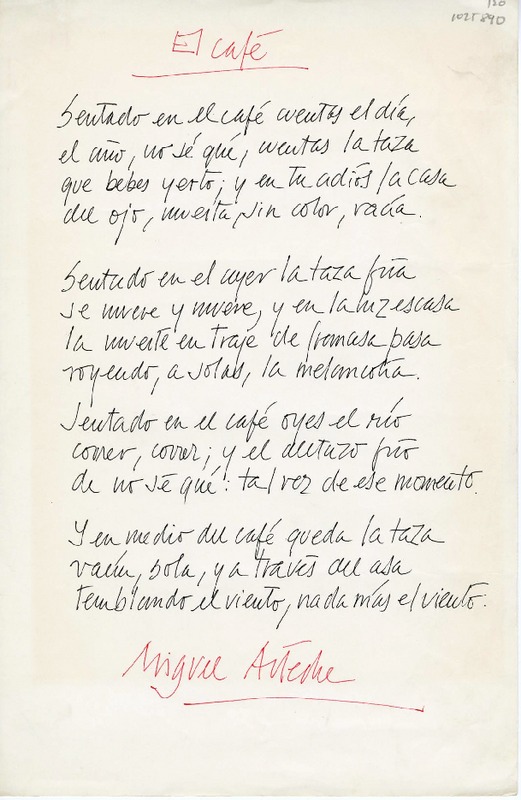 130
1025890
El café
Sentado en el café cuentas el día,
el año, no sé qué, cuentas la taza
que bebes yerto; y en tu adiós, la casa
del ojo, muerta, sin color, vacía.
Sentado en el ayer la taza fría
se mueve y mueve, y en la luz escasa
la muerte en traje de pasa
royendo, a solas, la melancolía.
Sentado en el café oyes el río
correr, correr; y el aletazo frío
de no sé qué: tal vez de ese momento.
Y en medio del café queda la taza
vacía, sola, y a través del asa
temblando el viento, nada más el viento.
Miguel Arteche